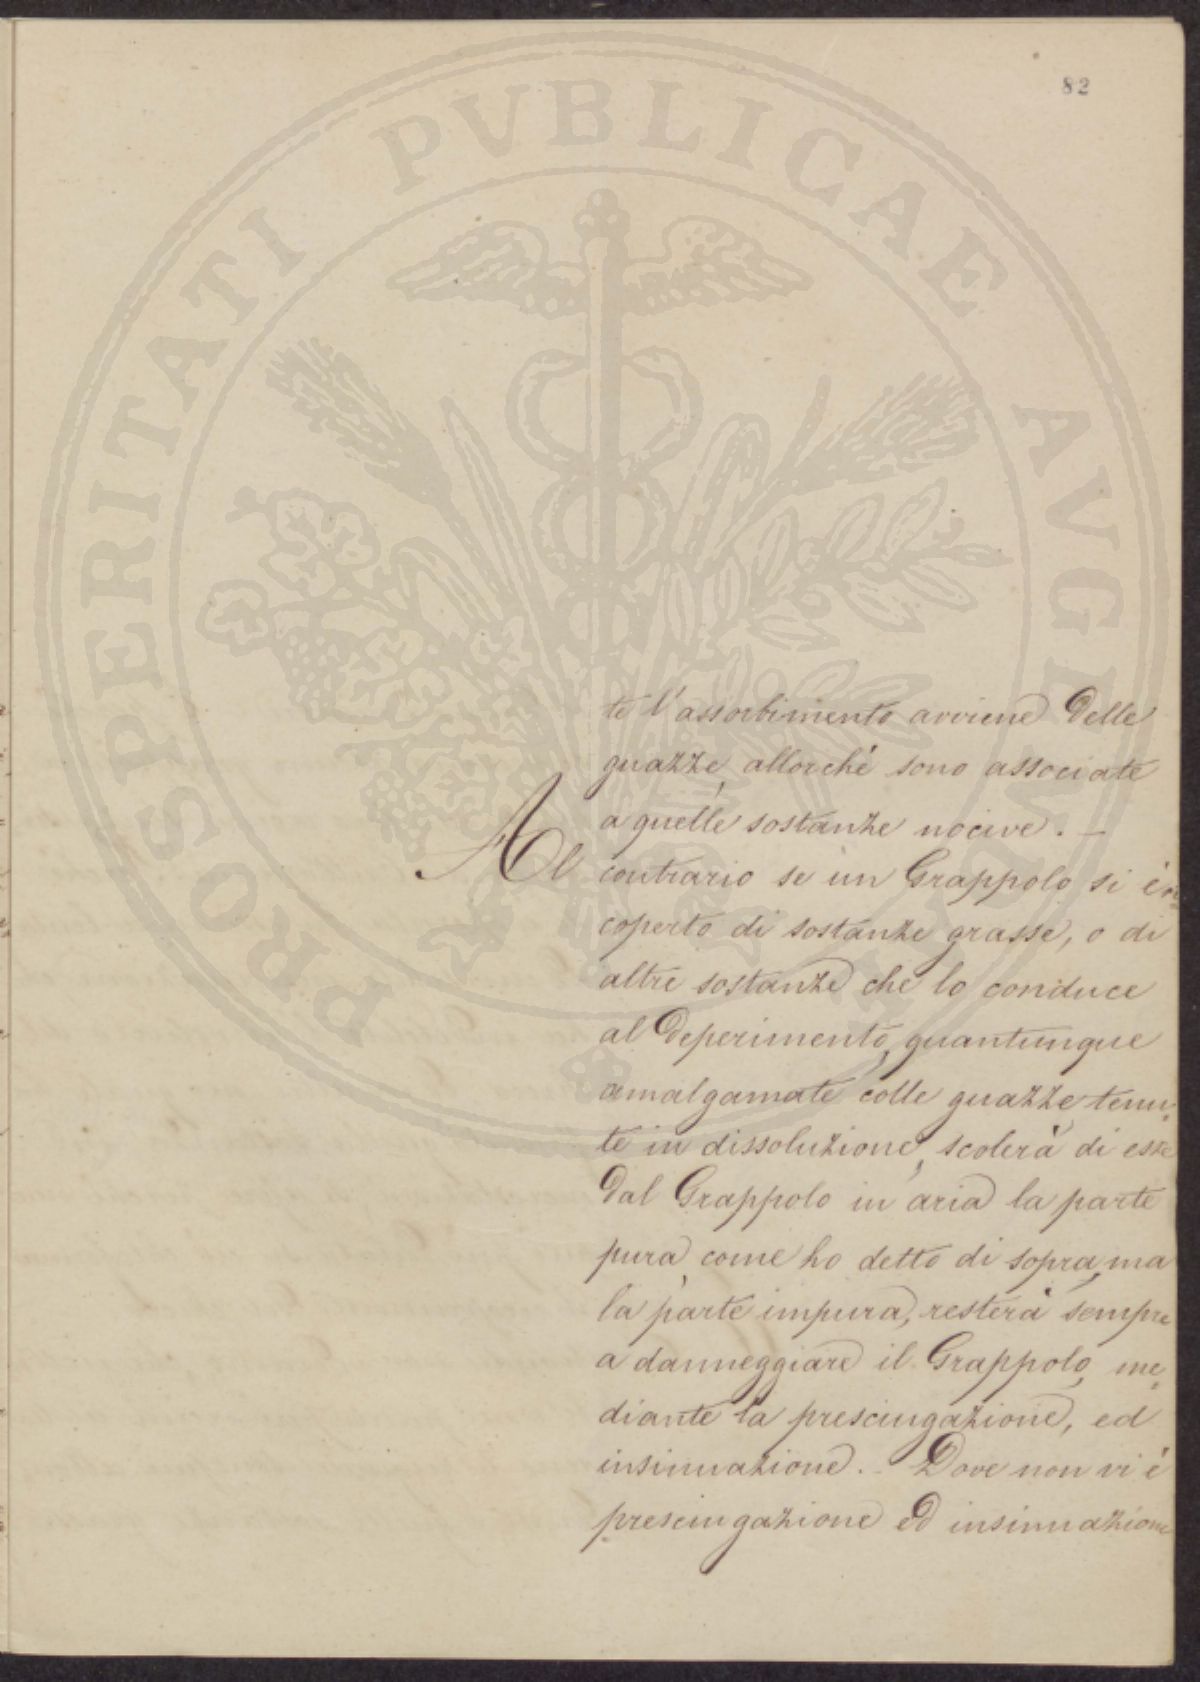 82
PROSPERITATI PUBLICAE AVGENDAE
te l'assorbimento avviene delle
guazze, allorché sono associate
a quelle sostanze nocive. –
Al contrario se un Grappolo si è ri=
coperto di sostanze grasse, o di
altre sostanze che lo conduce
al deperimento, quantunque
amalgamate colle guazze, tenu=
te in dissoluzione, scolerà di esse
dal Grappolo in aria la parte
pura, come ho detto di sopra, ma
la parte impura, resterà sempre
a danneggiare il Grappolo, me=
diante la prescingazione, ed
insinuazione. – Dove non vi è
prescingazione ed insinuazione